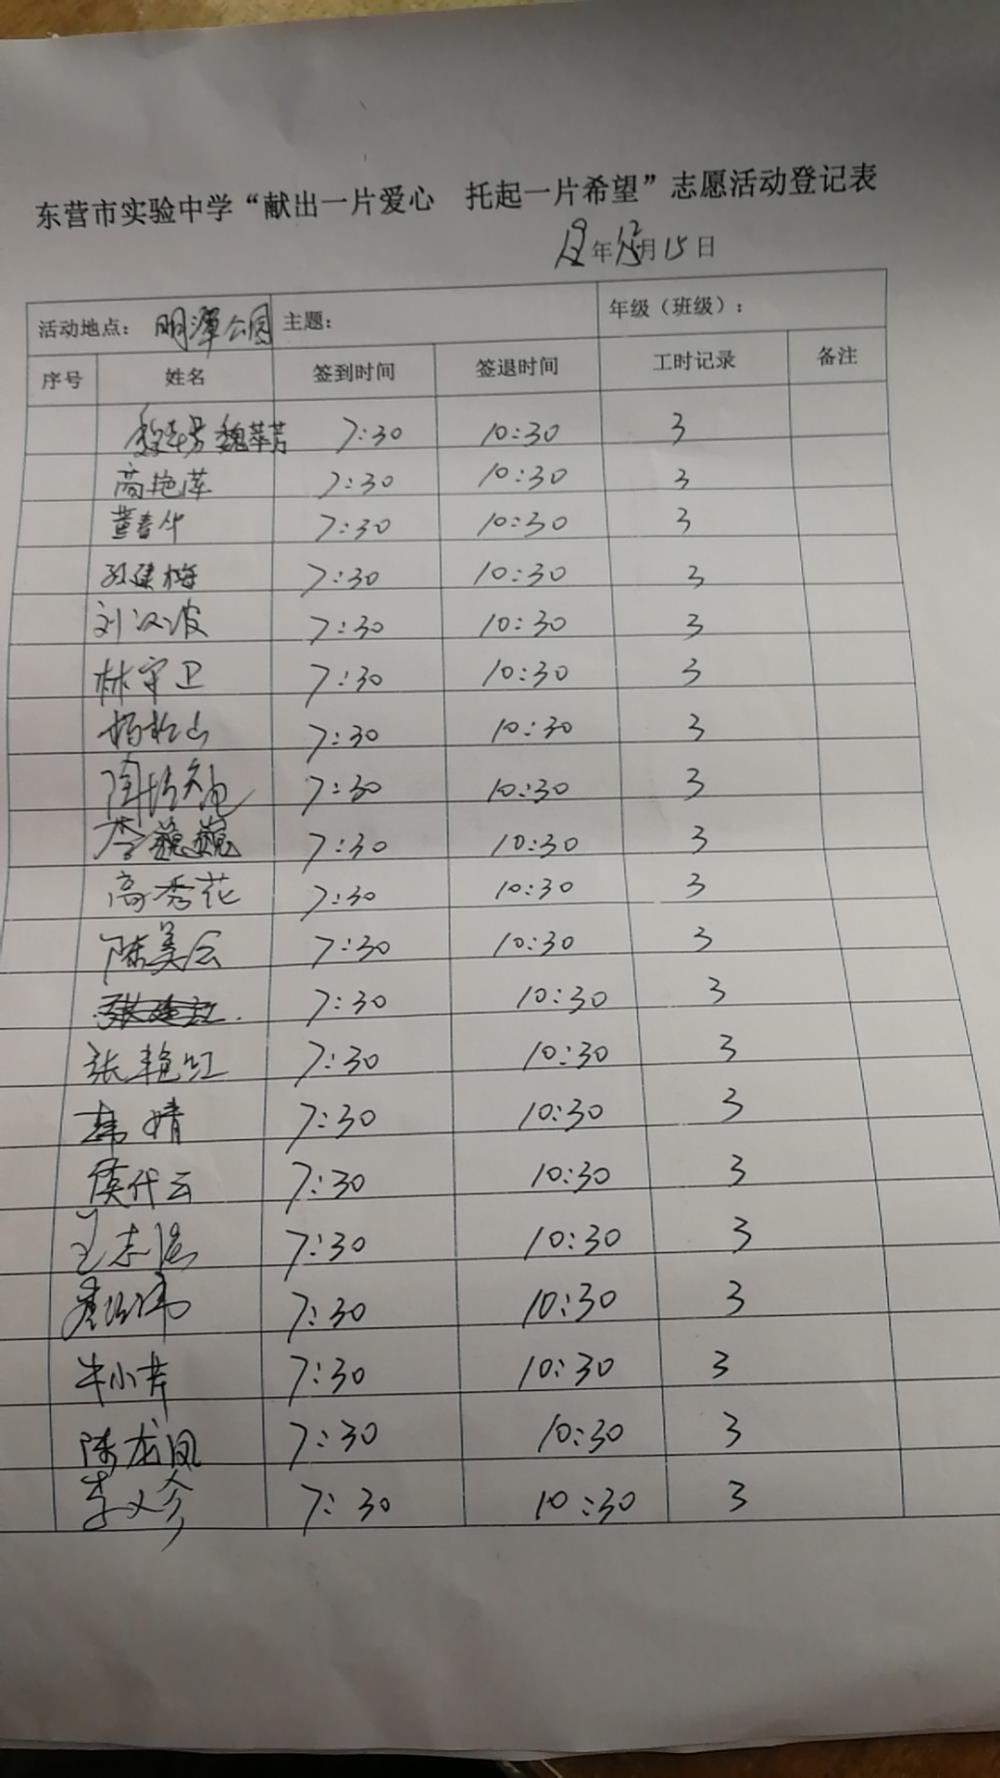 东营市实验中学“献出一片爱心 托起一片希望”志愿活动登记表
年 月15日
活动地点：明潭公园 主题： 年级（班级）：
序号 姓名 签到时间 签退时间 工时记录 备注
魏苹芳 7:30 10:30 3
高艳萍 7:30 10:30 3
董春华 7:30 10:30 3
孙建梅 7:30 10:30 3
刘汉波 7:30 10:30 3
林宇卫 7:30 10:30 3
杨松山 7:30 10:30 3
7:30 10:30 3
李巍巍 7:30 10:30 3
高秀花 7:30 10:30 3
陈美会 7:30 10:30 3
7:30 10:30 3
张艳红 7:30 10:30 3
韩婧 7:30 10:30 3
侯代云 7:30 10:30 3
王志 7:30 10:30 3
7:30 10:30 3
牛小芹 7:30 10:30 3
陈龙凤 7:30 10:30 3
李义珍 7:30 10:30 3